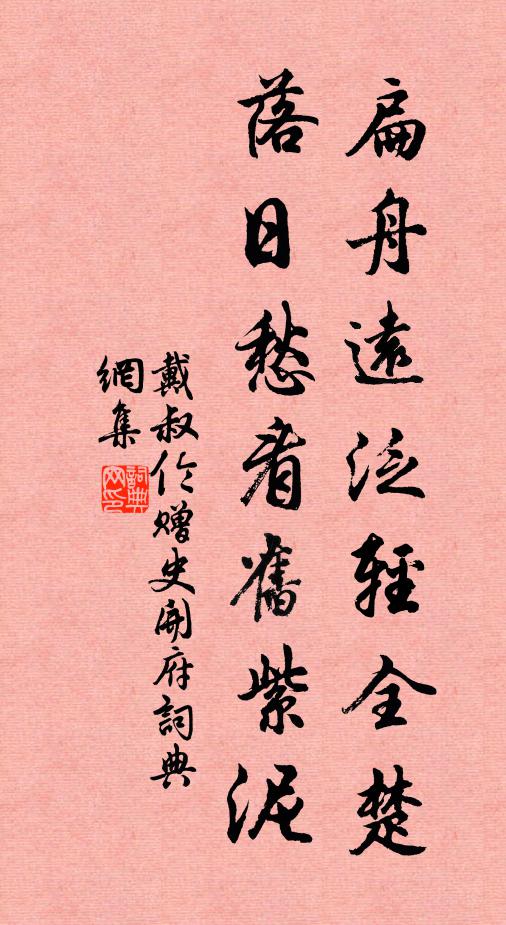 扁舟遠泛輕全楚
落日愁看舊紫泥
戴叔伦贈史開府詞典
網集
詞典
网印